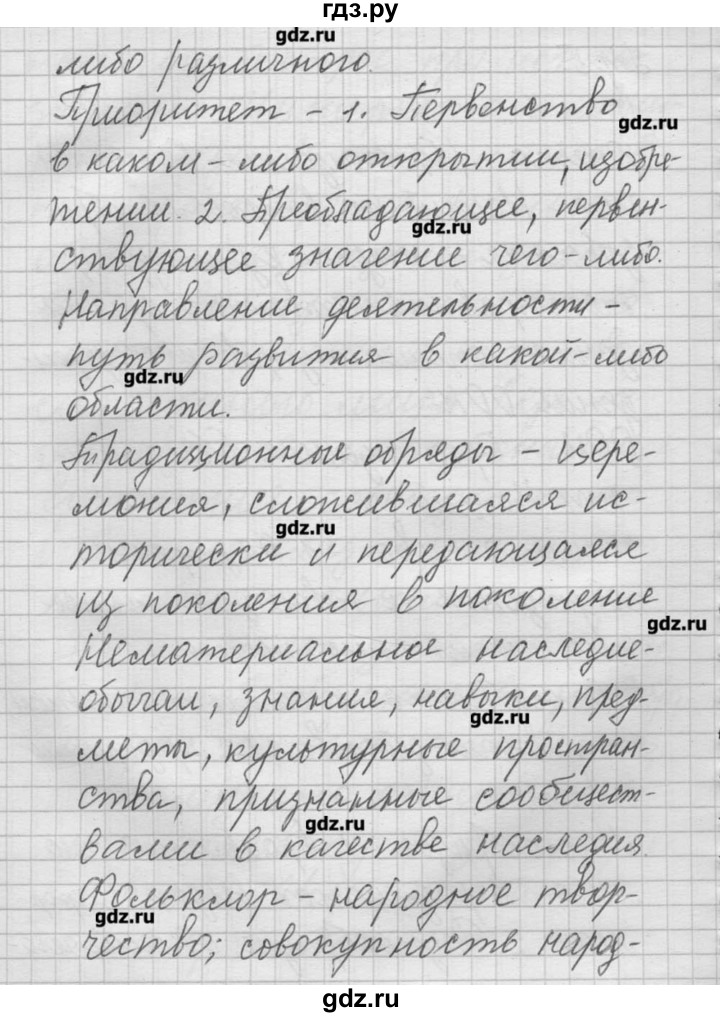 гдз.ру
gdz.ru
либо различного.
Приоритет - 1. Первенство
gdz.ru
в каком-либо открытии, изобре-
тении. 2. Преобладающее, первен-
gdz.ru
ствующее значение чего-либо.
Направление деятельности -
путь развития в какой-либо
gdz.ru
области.
Традиционные обряды - цере-
мония, сложившаяся ис-
gdz.ru
торически и передающаяся
из поколения в поколение
gdz.ru
Нематериальное наследие-
обычаи, знания, навыки, пред-
gdz.ru
меты, культурные простран-
ства, признанные сообщест-
gdz.ru
вами в качестве наследия.
Фольклор - народное твор-
gdz.ru
чество; совокупность народ-
gdz.ru